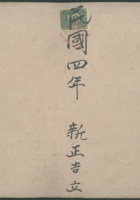 民國四年 新正吉立